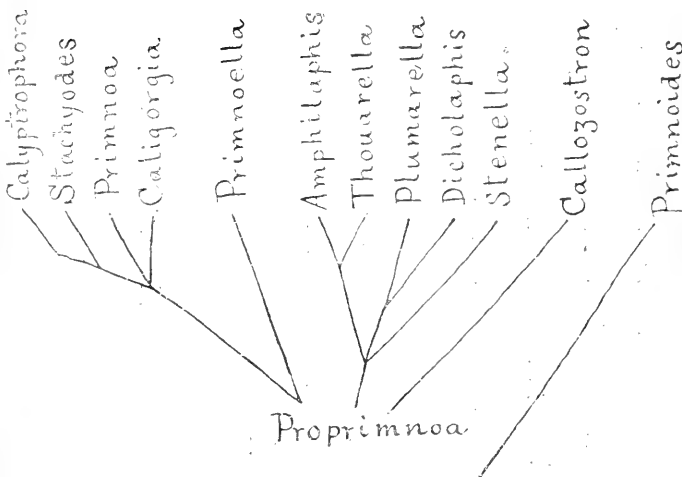 Calyptrophora
Stachyodes
Primnoa
Caligorgia
Primnoella
Amphilaphis
Thouarella
Plumarella
Dicholaphis
Stenella.
Callozostron
Primnoides
Proprimnoa